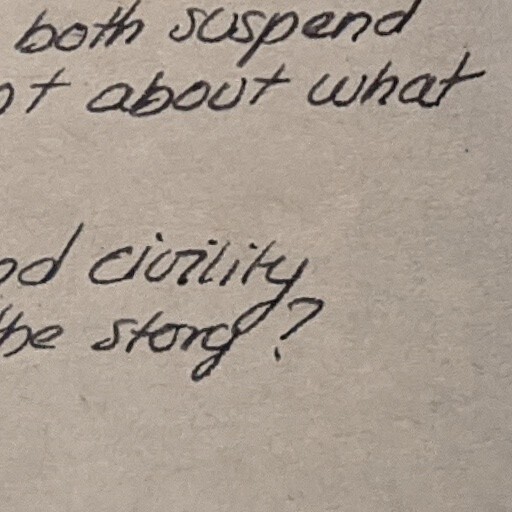 both suspend
ot about what
nd civility
the story?